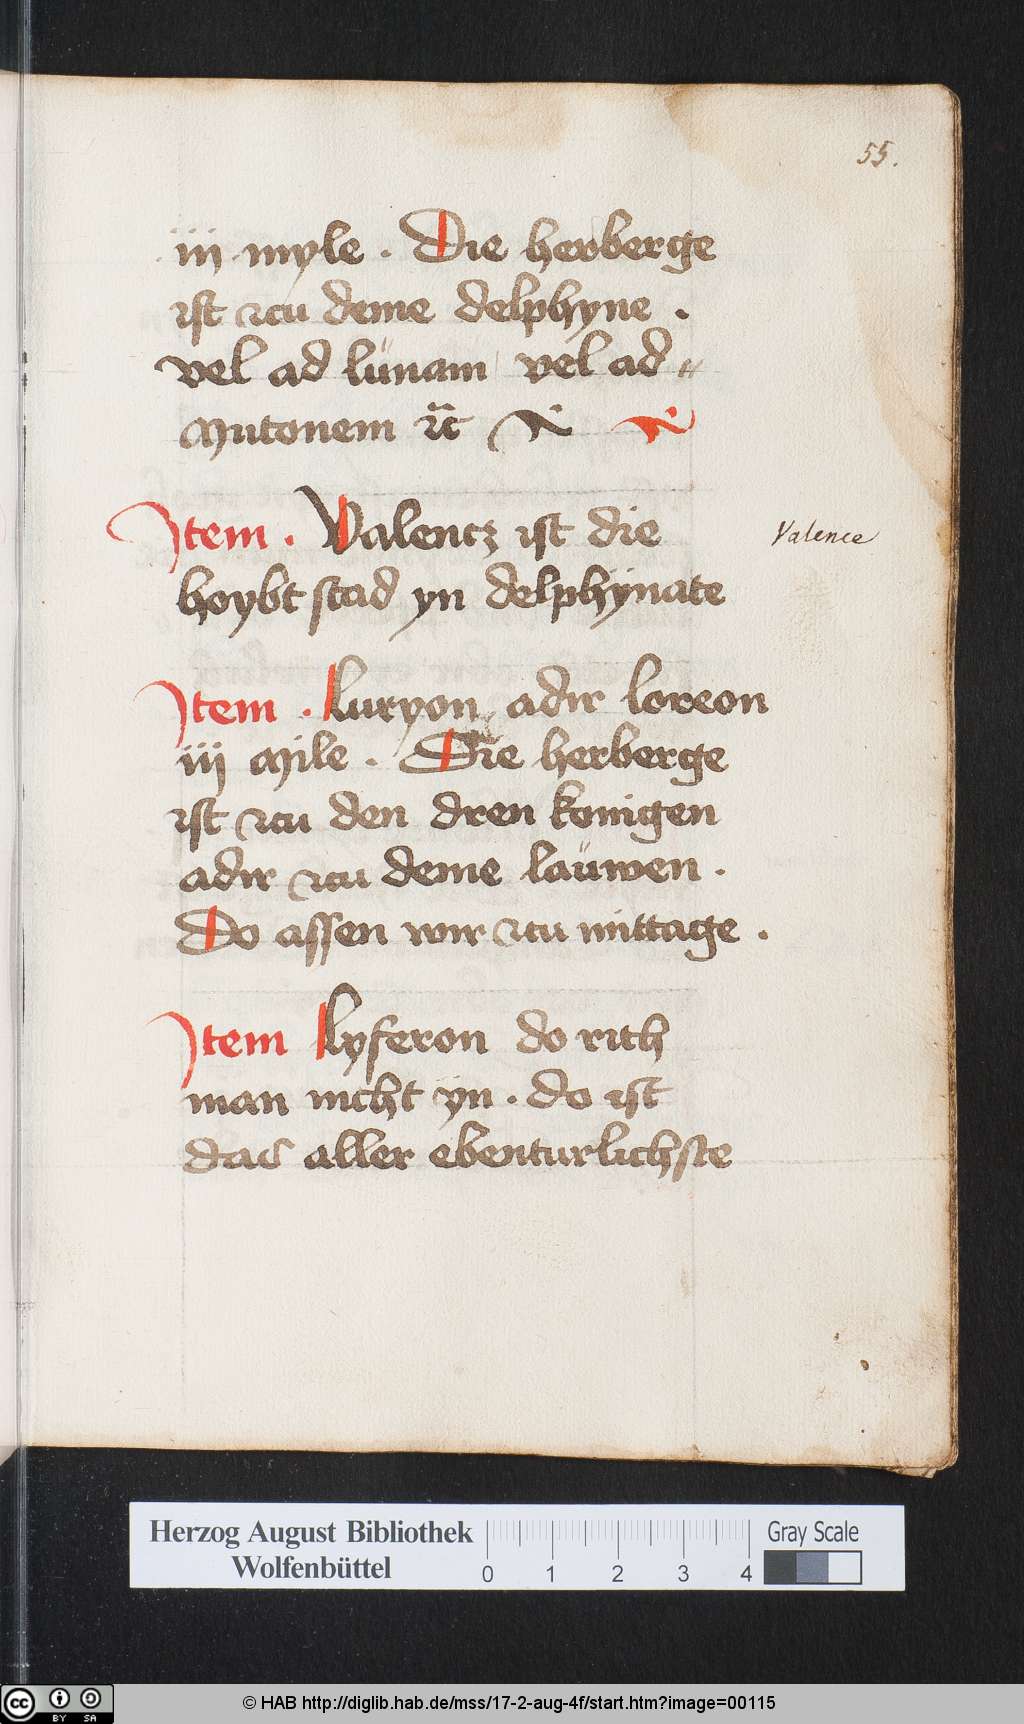 55.
iij myle . Die herberge
ist zcu deme delphyne .
vel ad lünam vel ad
Mutonem
Item . Valencz ist die
Valence
hoybt stad yn delphÿnate
Item . luryon adir loreon
iij Mile . Die herberge
ist zcu den dren konigen
adir zcu deme laüwen .
Do assen wir zcu mittage .
Item lyferon do rith
man nicht ÿn . do ist
das aller ebenturlichste
Herzog August Bibliothek
Wolfenbüttel
0 1 2 3 4
Gray Scale
cc BY SA
© HAB http://diglib.hab.de/mss/17-2-aug-4f/start.htm?image=00115